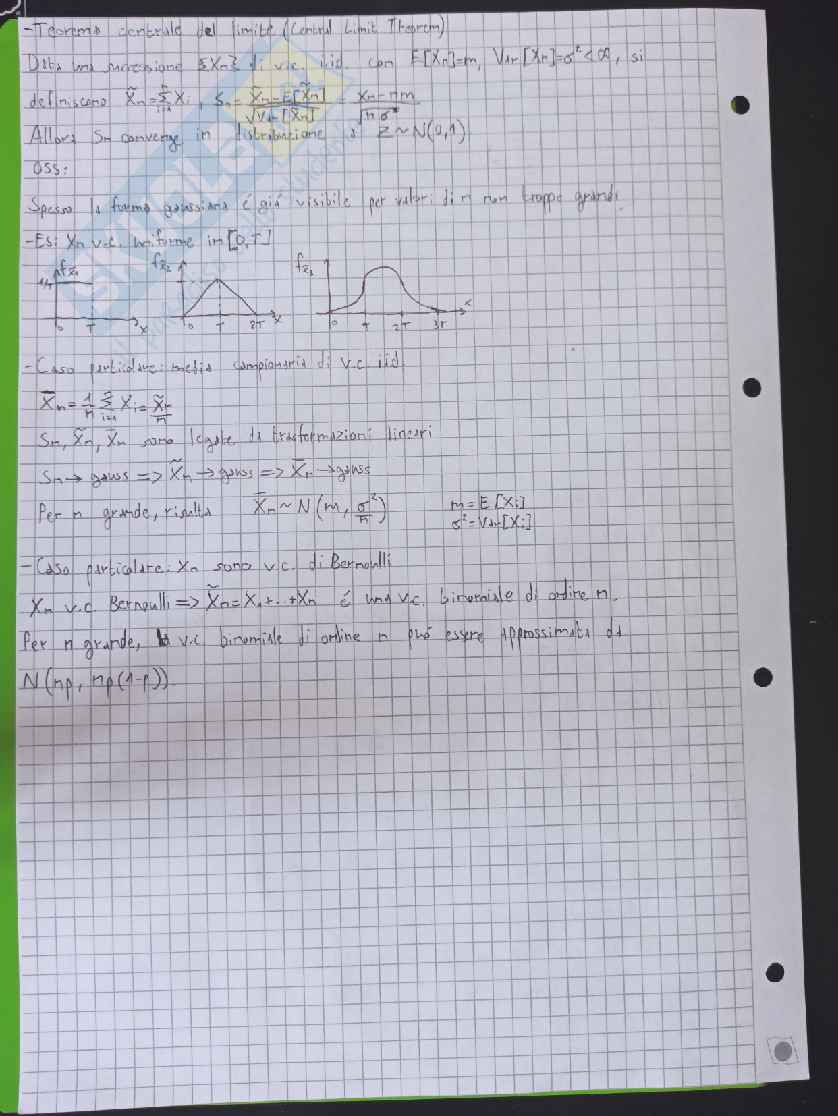 - Teorema centrale del limite (Central Limit Theorem)
Data una successione {Xn} di v.c. iid con E[Xn]=m, Var[Xn]=σ²<∞, si
definiscono X̃n=Σ(i=1..n) Xi, Sn=(X̃n-E[X̃n])/√Var[X̃n] = (X̃n-nm)/√nσ²
Allora Sn converge in distribuzione a Z~N(0,1)
OSS:
Spesso la forma gaussiana é giá visibile per valori di n non troppo grandi.
-Es: Xn v.c. uniforme in [0,T]
fx̃1 fx̃2 fx̃3
1/T
0 T x 0 T 2T x 0 T 2T 3T x
-Caso particolare: media campionaria di v.c. iid
X̄n=1/n Σ(i=1..n) Xi=X̃n/n
Sn, X̃n, X̄n sono legate da trasformazioni lineari
Sn→gauss => X̃n→gauss => X̄n→gauss
Per n grande, risulta X̄n~N(m, σ²/n) m=E[Xi]
σ²=Var[Xi]
-Caso particolare: Xn sono v.c. di Bernoulli
Xn v.c. Bernoulli => X̃n=X1+..+Xn é una v.c. binomiale di ordine n.
Per n grande, la v.c binomiale di ordine n puó essere approssimata da
N(np, np(1-p)).
SKUOLA